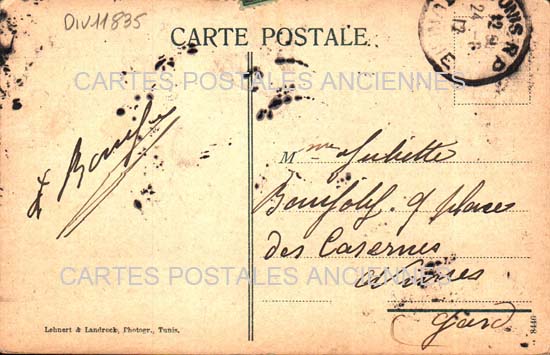 Div11835
CARTE POSTALE
CARTES POSTALES ANCIENNES
TUNIS R.P
24
12
Mme Juliette
9 places
des Casernes
Nimes
Gard
CARTES POSTALES ANCIENNES
Lehnert & Landrock, Photogr., Tunis.
8440